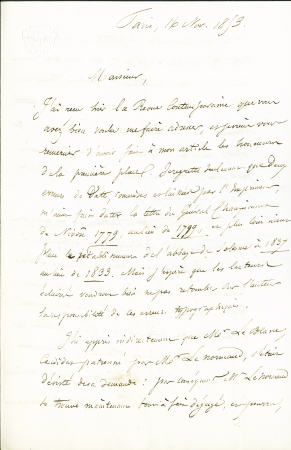 Paris, 16 Nov. 1853.
Monsieur,
J'ai reçu hier la Revue Contemporaine que vous
avez bien voulu me faire adresser, et je viens vous
remercier d'avoir fait à mon article les honneurs
de la première place. Je regrette seulement que deux
erreurs de date, commises et laissées par l'imprimeur,
m'aient fait dater la lettre du Général Championnet
de 1779, au lieu de 1799, et plus loin aient
placé le rétablissement de l'abbaye de Solesme à 1837
au lieu de 1833. Mais j'espère que les lecteurs
éclairés voudront bien ne pas rejeter sur l'auteur
la responsabilité de ces erreurs typographiques.
J'ai appris indirectement que Mr. Le Blanc,
candidat patronné par Mr. Lenormand, s'était
désisté de sa demande : par conséquent Mr. Lenormand
se trouve maintenant tout à fait dégagé, et pourra,